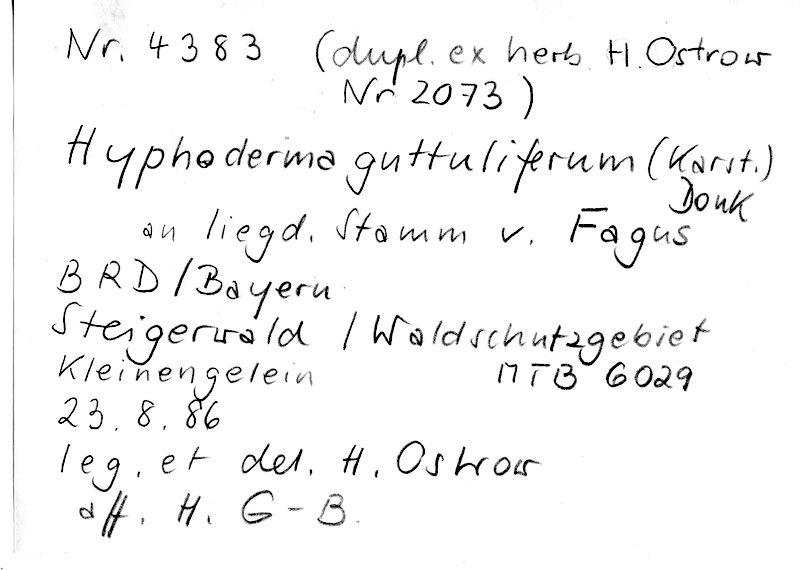 Nr. 4383 (dupl. ex herb. H. Ostrow
Nr 2073)
Hyphoderma guttuliferum (Karst.)
Donk
an liegd. Stamm v. Fagus
BRD/Bayern
Steigerwald / Waldschutzgebiet
Kleinengelein MTB 6029
23.8.86
leg. et det. H. Ostrow
aff. H. G-B.